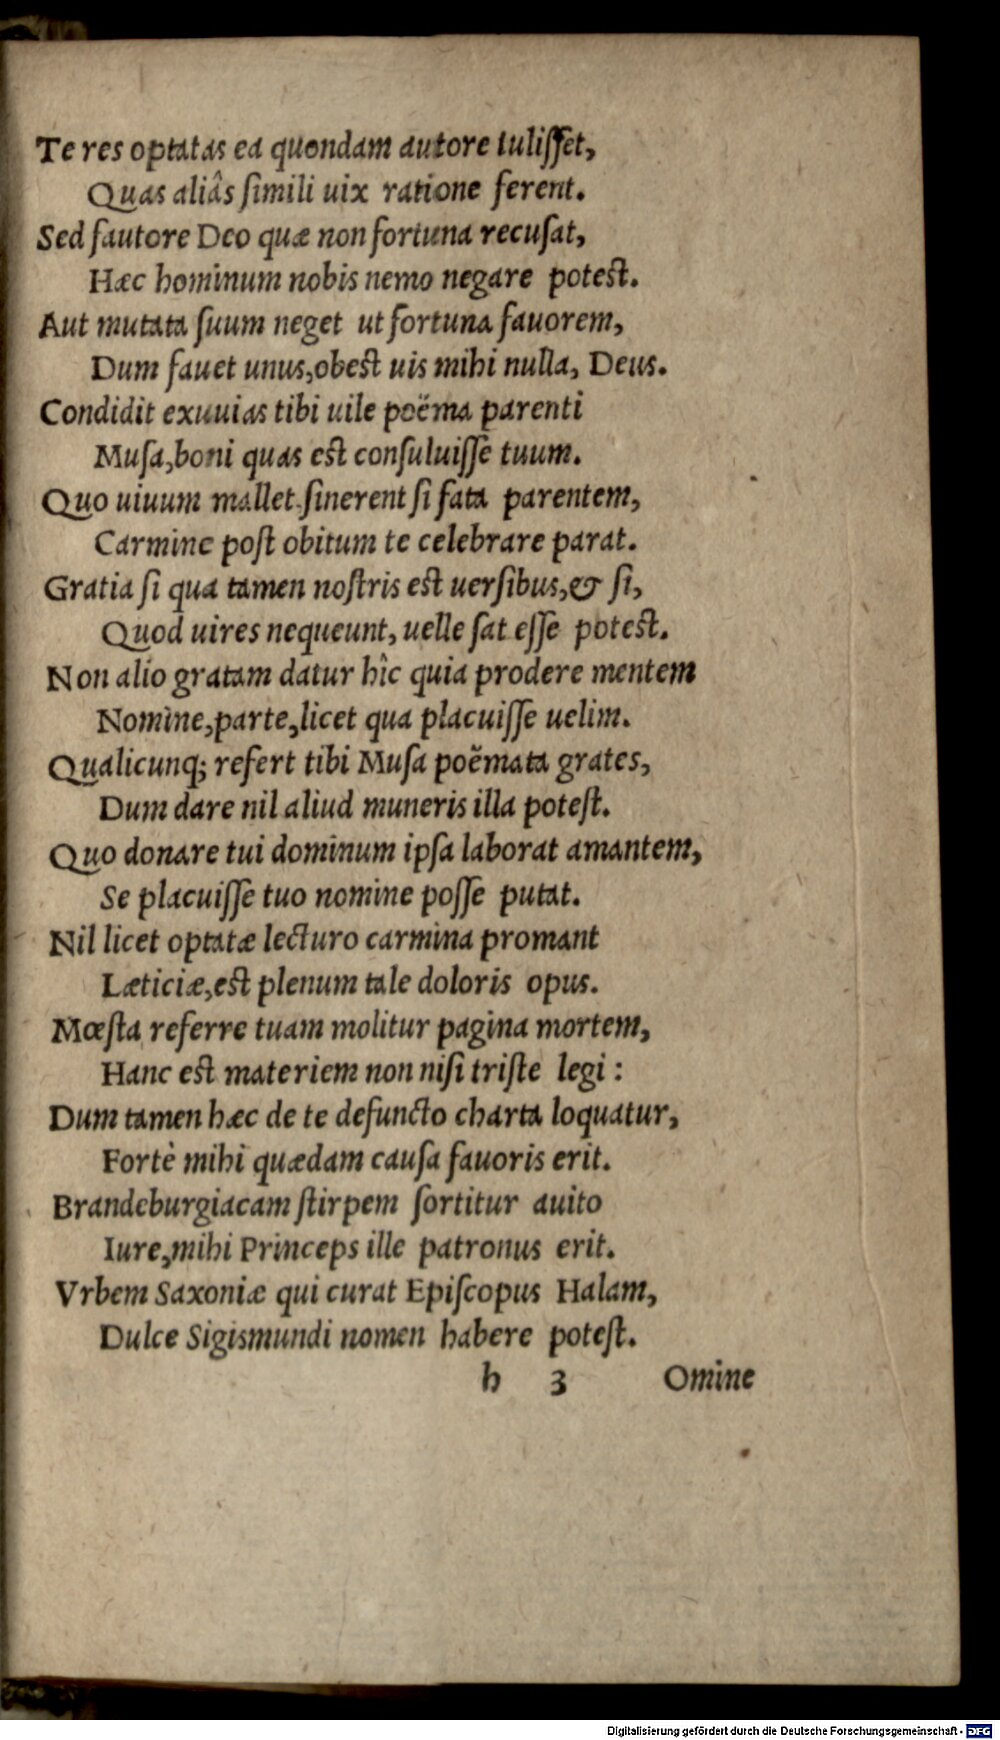 Te res optatas ea quondam autore tulisset,
Quas aliâs simili uix ratione ferent.
Sed fautore Deo quæ non fortuna recusat,
Hæc hominum nobis nemo negare potest.
Aut mutata suum neget ut fortuna fauorem,
Dum fauet unus, obest uis mihi nulla, Deus.
Condidit exuuias tibi uile poëma parenti
Musa, boni quas est consuluisse tuum.
Quo uiuum mallet, sinerent si fata parentem,
Carmine post obitum te celebrare parat.
Gratia si qua tamen nostris est uersibus, & si,
Quod uires nequeunt, uelle sat esse potest.
Non alio gratam datur hîc quia prodere mentem
Nomine, parte, licet qua placuisse uelim.
Qualicunq; refert tibi Musa poëmata grates,
Dum dare nil aliud muneris illa potest.
Quo donare tui dominum ipsa laborat amantem,
Se placuisse tuo nomine posse putat.
Nil licet optatæ lecturo carmina promant
Læticiæ, est plenum tale doloris opus.
Mœsta referre tuam molitur pagina mortem,
Hanc est materiem non nisi triste legi:
Dum tamen hæc de te defuncto charta loquatur,
Fortè mihi quædam causa fauoris erit.
Brandeburgiacam stirpem sortitur auito
Iure, mihi Princeps ille patronus erit.
Vrbem Saxoniæ qui curat Episcopus Halam,
Dulce Sigismundi nomen habere potest.
h 3 Omine
Digitalisierung gefördert durch die Deutsche Forschungsgemeinschaft - DFG